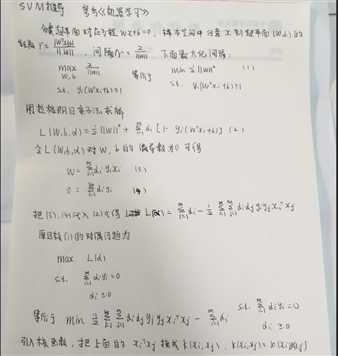 SVM推导 参考《机器学习》
分离超平面对应方程 wx+b=0, 样本空间中任意x到超平面(w,b)的
距离 r = |wᵀx+b| / ||w||, 间隔 r = 2/||w||, 下面最大化间隔
max w,b 2/||w|| 等价于 min ½||w||² (1)
s.t. yᵢ(wᵀxᵢ+b)≥1 s.t. yᵢ(wᵀxᵢ+b)≥1
用拉格朗日乘子法求解
L(w,b,α) = ½||w||² + Σ αᵢ[1-yᵢ(wᵀxᵢ+b)] (2)
令L(w,b,α)对w,b的偏导数为0可得
w = Σ αᵢyᵢxᵢ (3)
0 = Σ αᵢyᵢ (4)
把(3),(4)代入(2)可得 L(α) = Σ αᵢ - ½ Σ Σ αᵢαⱼyᵢyⱼxᵢᵀxⱼ
原目标(1)的对偶问题为
max L(α)
s.t. Σ αᵢyᵢ=0
αᵢ≥0
等价于 min ½ Σ Σ αᵢαⱼyᵢyⱼxᵢᵀxⱼ - Σ αᵢ s.t. Σ αᵢyᵢ=0
αᵢ≥0
引入核函数, 把上面的 xᵢᵀxⱼ 换成 k(xᵢ,xⱼ), k(xᵢ,xⱼ)=